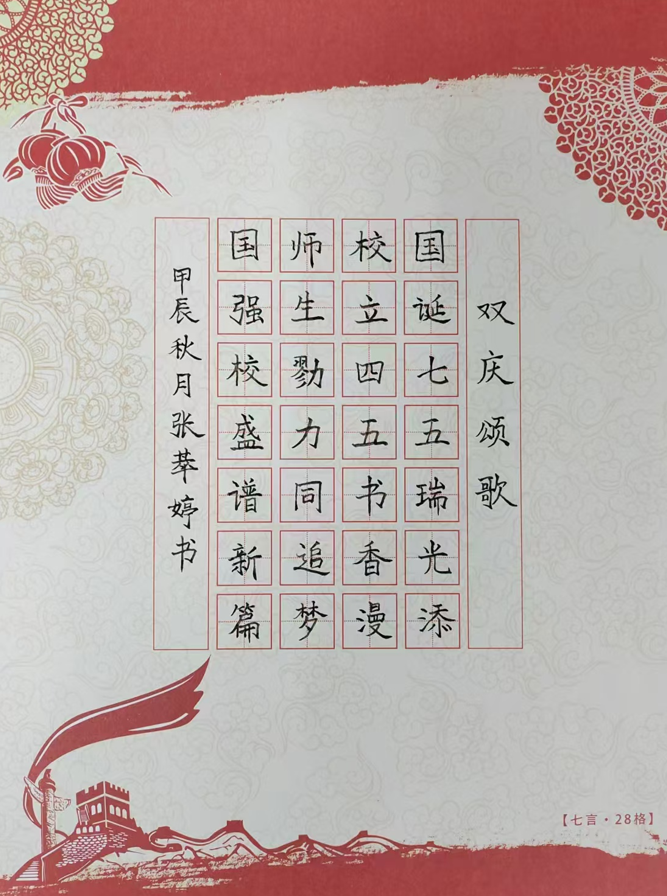 双庆颂歌
国诞七五瑞光添
校立四五书香漫
师生勠力同追梦
国强校盛谱新篇
甲辰秋月张莘婷书
【七言·28格】